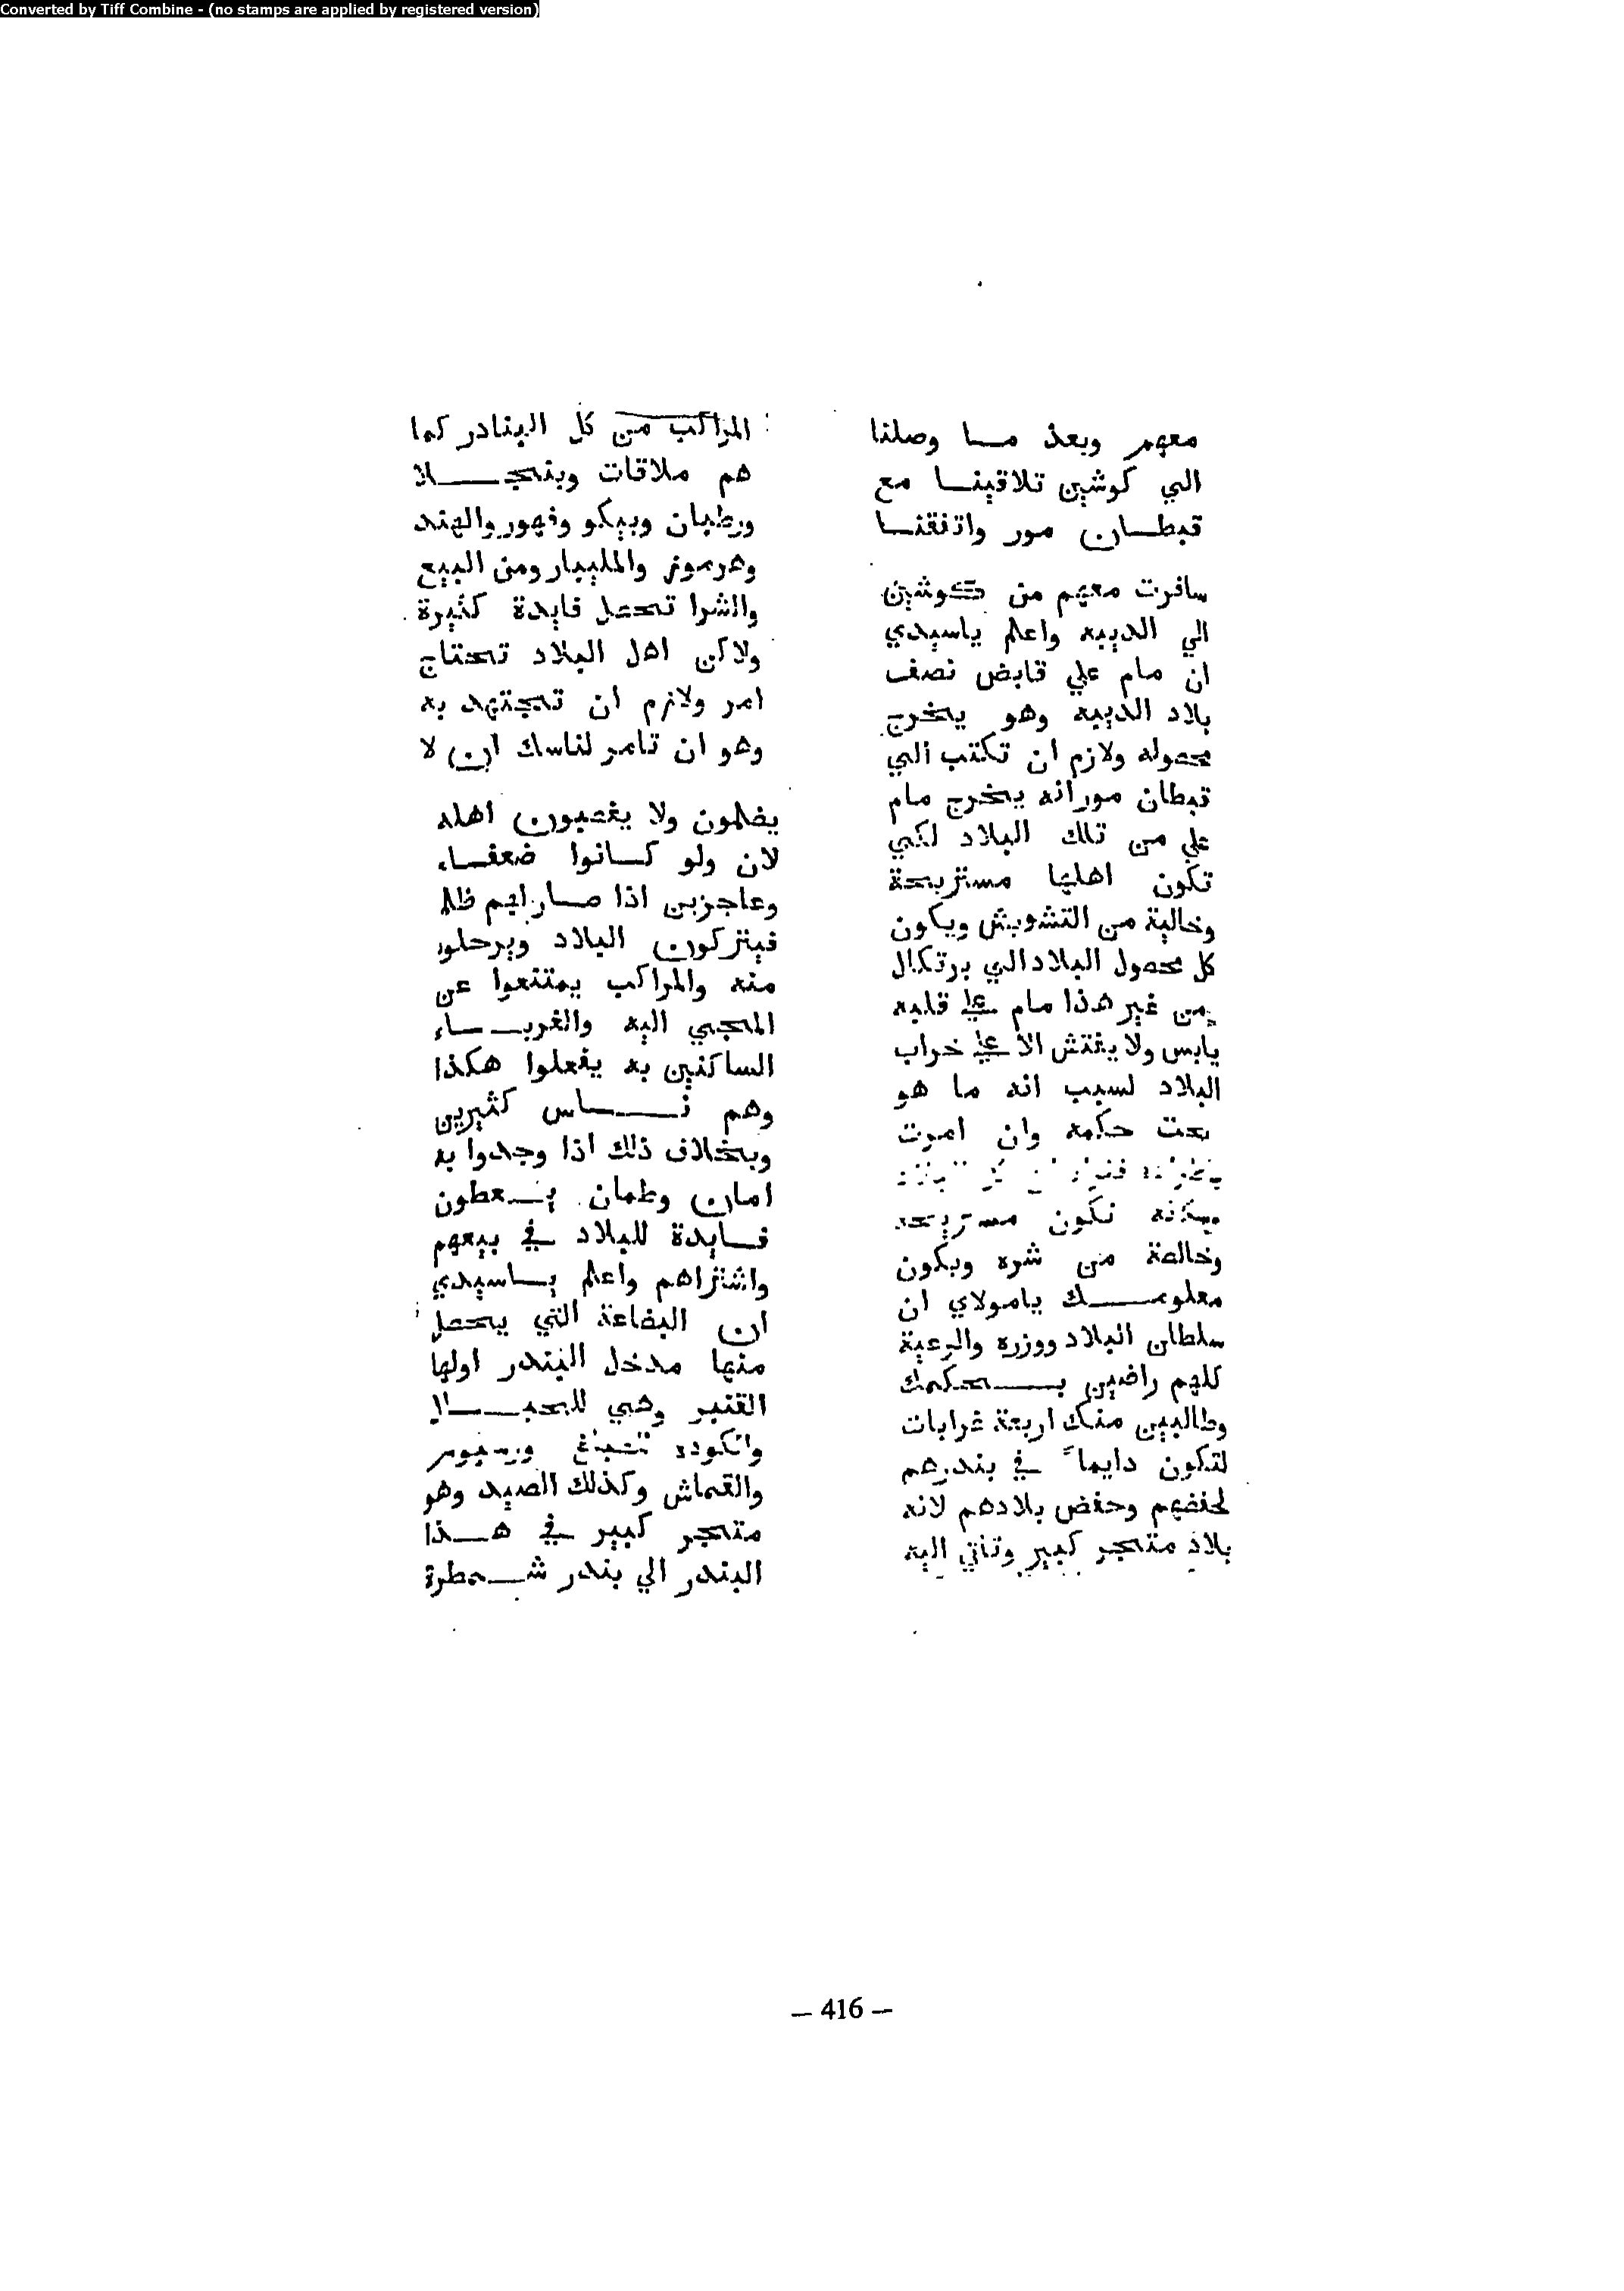 Converted by Tiff Combine - (no stamps are applied by registered version)
معهم وبعد مـا وصلنا
الي كوشين تلاقينـا مع
قبطـان مور واتفقنـا
سافرت معهم من كوشين
الي الديبه واعلم ياسيدي
ان مام علي قابض نصف
بلاد الديبه وهو يخرج
محصوله ولازم ان تكتب الي
قبطان مورانه يخرج مام
علي من تلك البلاد لكي
تكون اهلها مستريحة
وخالية من التشويش ويكون
كل محصول البلاد الي برتكال
من غير هذا مام علي قلبه
يابس ولا يفتش الا علي خراب
البلاد لسبب انه ما هو
تحت حكمه وان امرت
تكون
وخالصة من شره ويكون
معلومـك يامولاي ان
سلطان البلاد ووزره والرعية
كلهم راضين بـحكمك
وطالبين منك اربعة غرابات
لتكون دايماً في بندرهم
لحفضهم وحفض بلادهم لانه
بلاد متجر كبير وتاتي اليه
المراكب من كل البنادر كما
هم ملاقات وبنجـالا
ورطبان وبيكو وفهور والهند
وهرموز والمليبار ومن البيع
والشرا تحصل فايدة كثيرة
ولاكن اهل البلاد تحتاج
امر ولازم ان تجتهد به
وهو ان تامر لناسك ان لا
يضلمون ولا يغصبون اهله
لان ولو كـانوا ضعفـاء
وعاجزين اذا صـار لهم ظلم
فيتركون البلاد ويرحلو
منه والمراكب يمتنعوا عن
المجي اليه والغربـاء
الساكنين به يفعلوا هكذا
وهم نـاس كثيرين
وبخلاف ذلك اذا وجدوا به
امان وطمان يـعطون
فـايدة للبلاد في بيعهم
واشتراهم واعلم يـاسيدي
ان البضاعة التي يحصل
منها مدخل البندر اولها
القنبر وهي للحبـال
والكوده
والقماش وكذلك الصيد وهو
متجر كبير في هـذا
البندر الي بندر شـمطرة
– 416 –